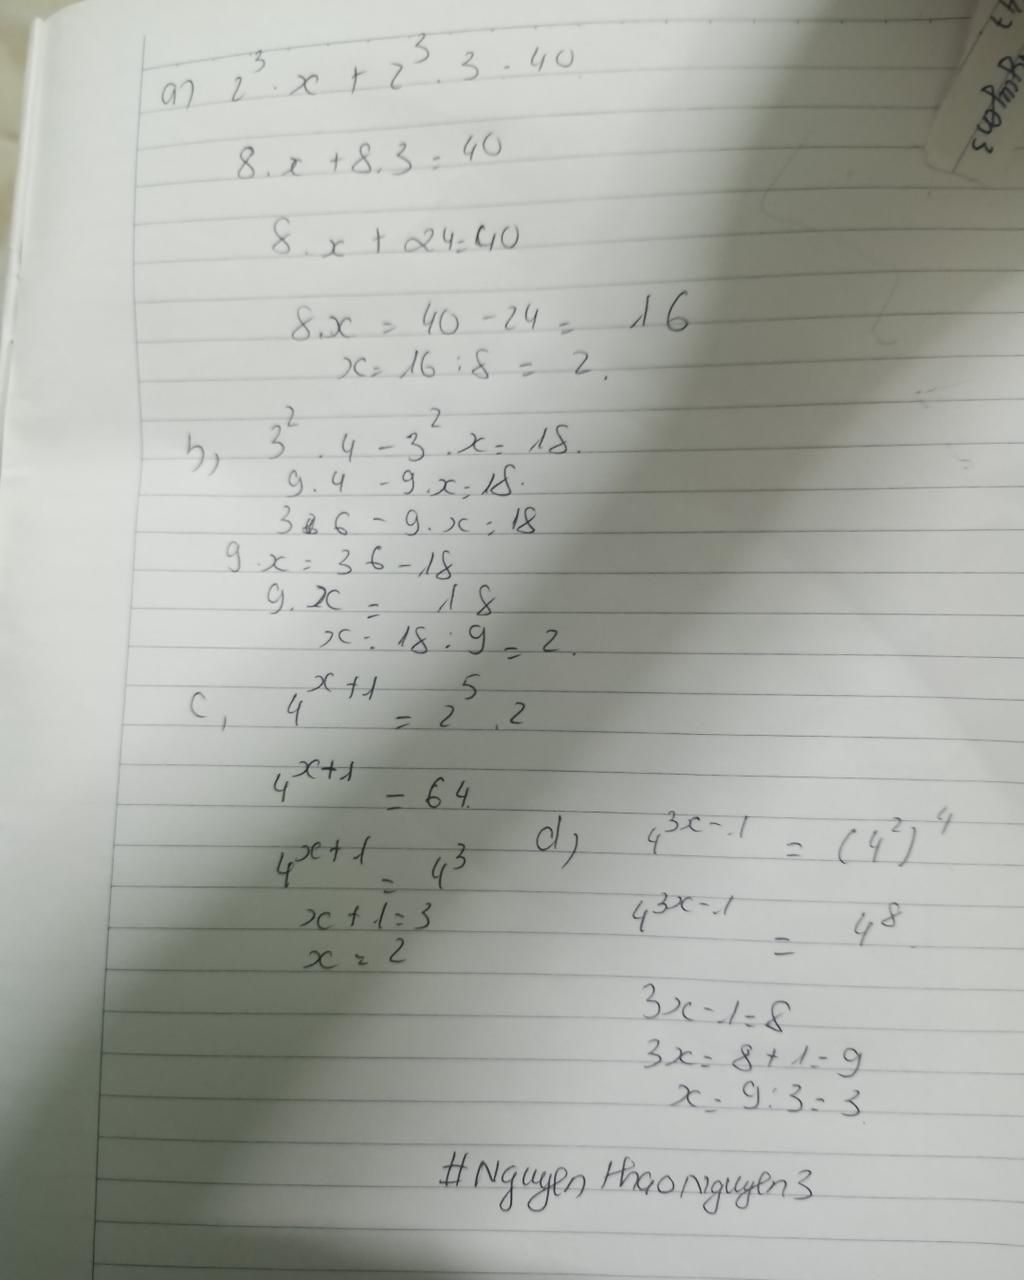 a) 2³ . x + 2³ . 3 = 40
8 . x + 8 . 3 = 40
8 . x + 24 = 40
8.x = 40 - 24 = 16
x = 16 : 8 = 2.
b, 3² . 4 - 3² . x = 18.
9 . 4 - 9 . x = 18.
36 - 9 . x = 18
9 . x = 36 - 18
9 . x = 18
x = 18 : 9 = 2.
c, 4ˣ⁺¹ = 2⁵ . 2
4ˣ⁺¹ = 64
4ˣ⁺¹ = 4³
x + 1 = 3
x = 2
d, 4³ˣ⁻¹ = (4²)⁴
4³ˣ⁻¹ = 4⁸
3x - 1 = 8
3x = 8 + 1 = 9
x = 9 : 3 = 3
#NguyenthaoNguyen3